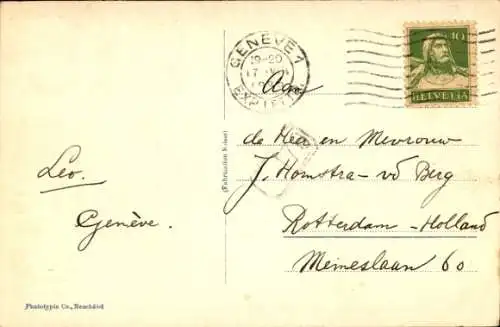 GENÈVE 1
19-20
EXP. LET
10
HELVETIA
Aan
de Heer en Mevrouw
J. Homstra - vd Berg
Rotterdam - Holland
Meineslaan 60
Leo.
Genève.
(Fabrication Suisse)
Phototypie Co., Neuchâtel